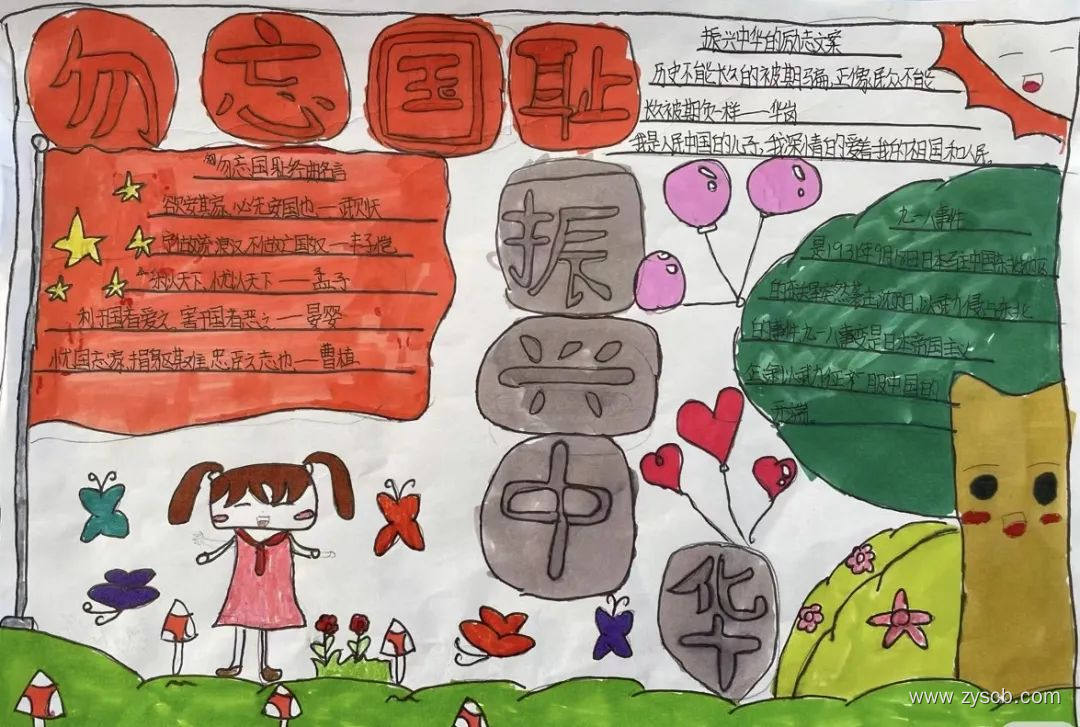 勿忘国耻
振兴中华的励志文案
历史不能长久的被欺骗,正像民众不能
我是人民中国的儿子,我深情的爱着我的祖国和人民。
勿忘国耻经典名言
欲安其家,必先安国也——武则天
宁做流浪汉,不做亡国奴——丰子恺
乐以天下,忧以天下——孟子
利于国者爱之,害于国者恶之——晏婴
忧国忘家,捐躯其难,忠臣之志也——曹植
振兴中华
九一八事件
是1931年9月18日日本在中国东北地区
的事件,九一八事变是日本帝国主义
企图以武力征服中国的
开端。
www.zyscb.com